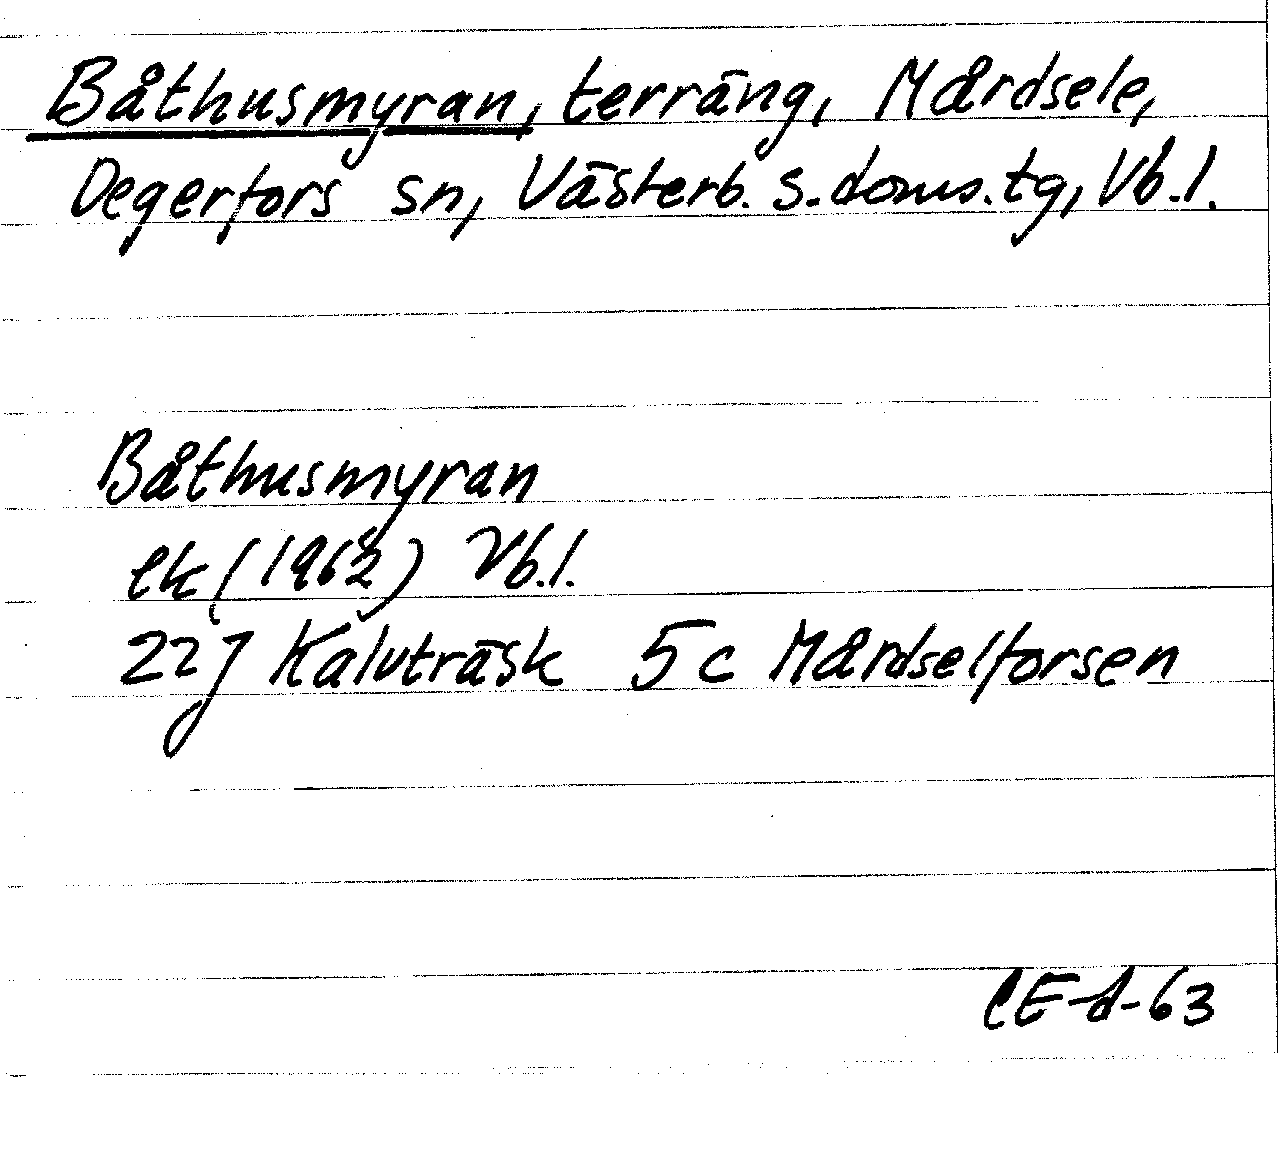 Båthusmyran, terräng, Mårdsele,
Degerfors sn, Västerb. s. doms.tg, Vb.l.
Båthusmyran
ek (1962) Vb.l.
22J Kalvträsk 5c Mårdselforsen
CE-d-63